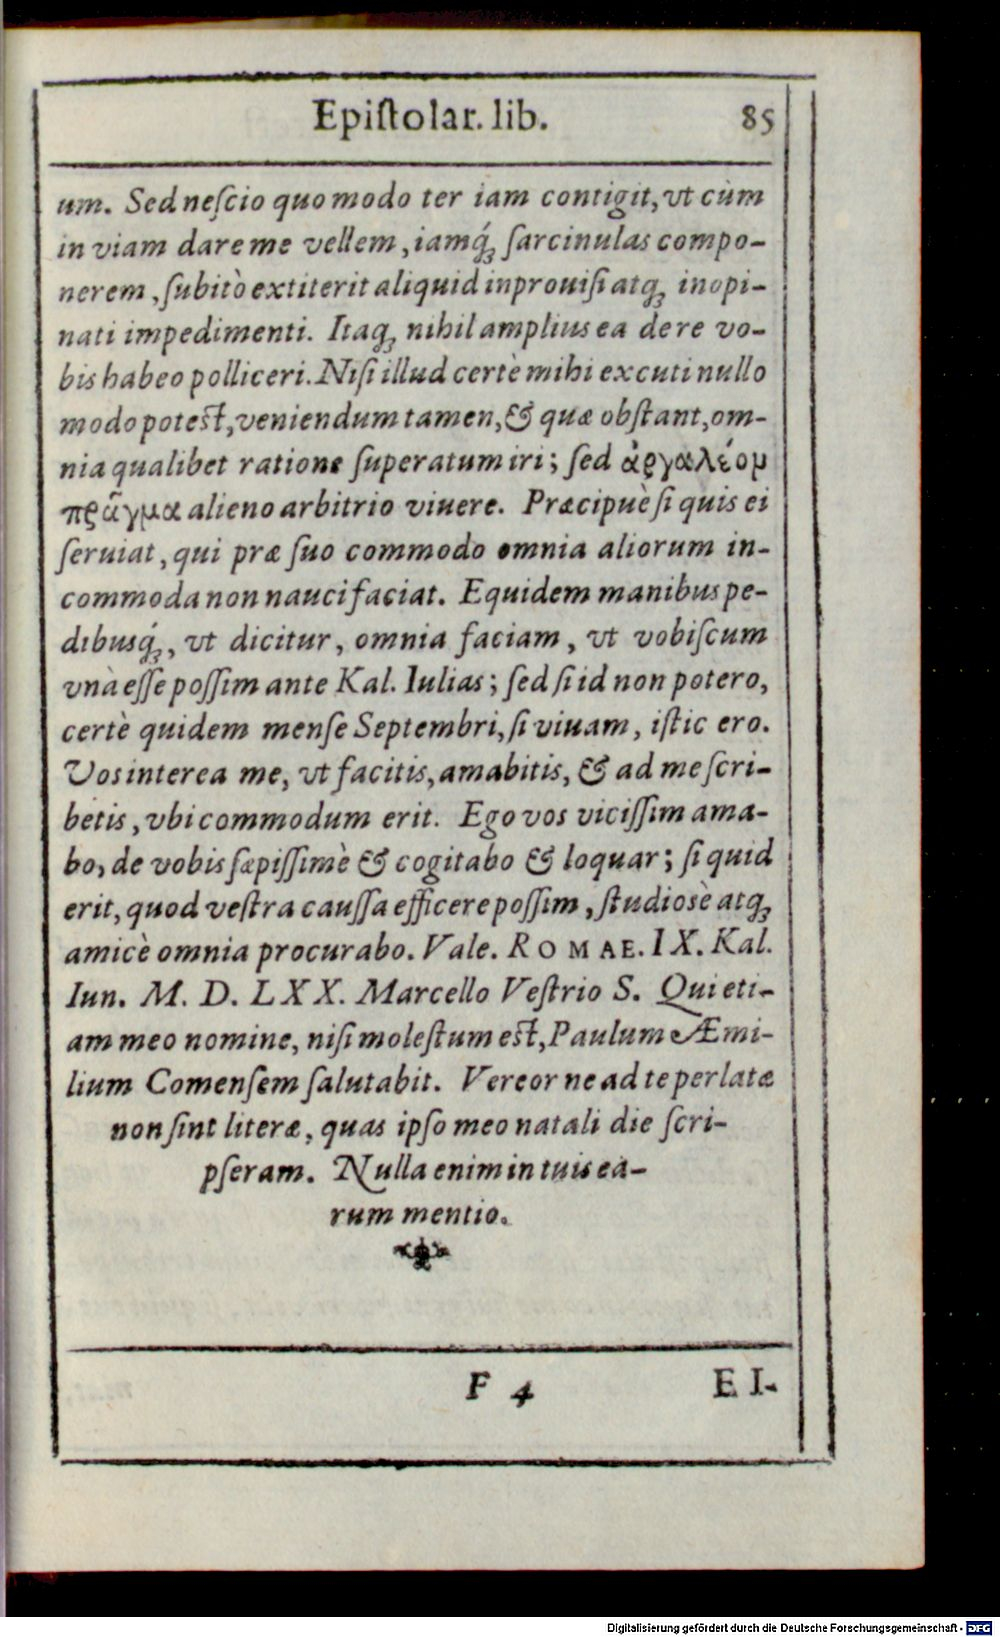 Epiſtolar. lib. 85
um. Sed neſcio quo modo ter iam contigit, vt cùm
in viam dare me vellem, iamq́ꝫ ſarcinulas compo-
nerem, ſubitò extiterit aliquid inprouiſi atqꝫ inopi-
nati impedimenti. Itaqꝫ nihil amplius ea de re vo-
bis habeo polliceri. Niſi illud certè mihi excuti nullo
modo poteſt, veniendum tamen, & quæ obſtant, om-
nia qualibet ratione ſuperatum iri; ſed ἀργαλέομ
πρᾶγμα alieno arbitrio viuere. Præcipuè ſi quis ei
ſeruiat, qui præ ſuo commodo omnia aliorum in-
commoda non nauci faciat. Equidem manibus pe-
dibusq́ꝫ, vt dicitur, omnia faciam, vt vobiſcum
vnà eſſe poſſim ante Kal. Iulias; ſed ſi id non potero,
certè quidem menſe Septembri, ſi viuam, iſtic ero.
Vos interea me, vt facitis, amabitis, & ad me ſcri-
betis, vbi commodum erit. Ego vos viciſſim ama-
bo, de vobis ſæpiſſimè & cogitabo & loquar; ſi quid
erit, quod veſtra cauſſa efficere poſſim, ſtudiosè atqꝫ
amicè omnia procurabo. Vale. ROMAE. IX. Kal.
Iun. M. D. LXX. Marcello Veſtrio S. Qui eti-
am meo nomine, niſi moleſtum eſt, Paulum Æmi-
lium Comenſem ſalutabit. Vereor ne ad te perlatæ
non ſint literæ, quas ipſo meo natali die ſcri-
pſeram. Nulla enim in tuis ea-
rum mentio.
F 4 EI-
Digitalisierung gefördert durch die Deutsche Forschungsgemeinschaft - DFG